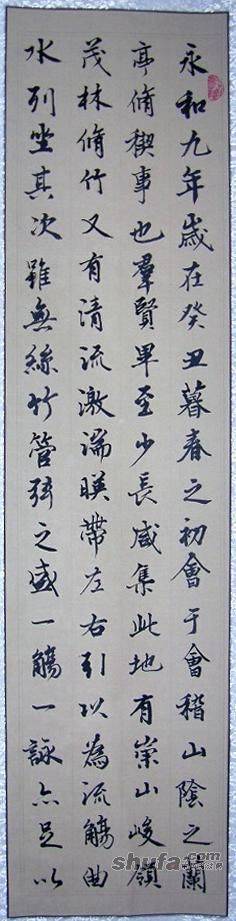 永和九年歲在癸丑暮春之初會于會稽山陰之蘭
亭脩稧事也羣賢畢至少長咸集此地有崇山峻嶺
茂林脩竹又有清流激湍暎帶左右引以為流觴曲
水列坐其次雖無絲竹管弦之盛一觴一詠亦足以
shufa.com